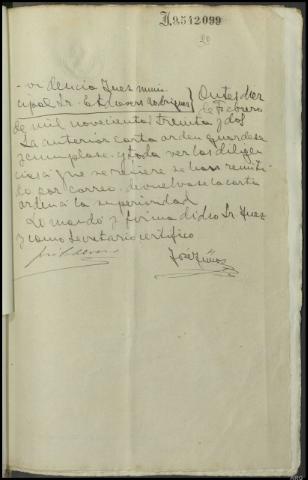 N.9542099
-videncia Juez muni-
cipal Sr. Rodriguez
de Febrero
de mil novecientos treinta y dos
La anterior carta orden guardese
y cumplase y toda vez las diligen
cias a que se refiere se han remiti
do por correo devuelvase la carta
orden a la superioridad
Lo mandó y firma dicho Sr Juez
y como Secretario certifico
José